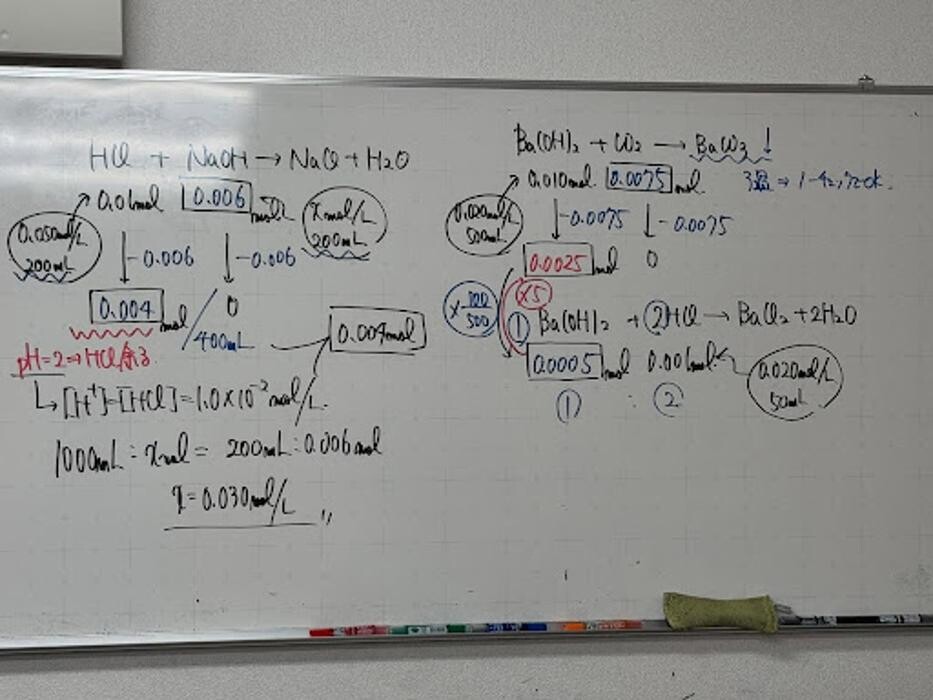 HCl + NaOH → NaCl + H2O
0.01mol 0.006 mol
0.050mol/L
200mL
x mol/L
200mL
-0.006 -0.006
0.004 mol 0
400mL
0.004mol
pH=2⇒HCl余る
[H+]=[HCl]=1.0×10-2mol/L
1000mL : x mol = 200mL : 0.006mol
x=0.030mol/L
Ba(OH)2 + CO2 → BaCO3↓
0.010mol 0.0075 mol
0.020mol/L
500mL
-0.0075 -0.0075
0.0025 mol 0
×5
×100/500
① Ba(OH)2 + ②HCl → BaCl2 + 2H2O
0.0005 mol 0.001mol
0.020mol/L
50mL
① : ②